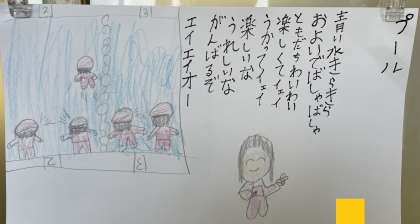 プール
青い水きらきら
およいでばしゃばしゃ
ともだちわいわい
楽しくてイェイ
うかってイェイ
楽しいな
うれしいな
がんばるぞ
エイエイオー
2
3
2
3